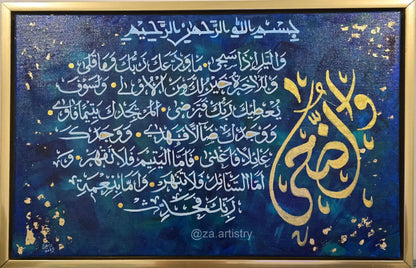 بسم الله الرحمن الرحيم
والضحى
واليل إذا سجى ما ودعك ربك وما قلى
وللآخرة خير لك من الأولى ولسوف
يعطيك ربك فترضى ألم يجدك يتيما فآوى
ووجدك ضالا فهدى ووجدك
عائلا فأغنى فأما اليتيم فلا تقهر و
أما السائل فلا تنهر وأما بنعمة
ربك فحدث
@za.artistry